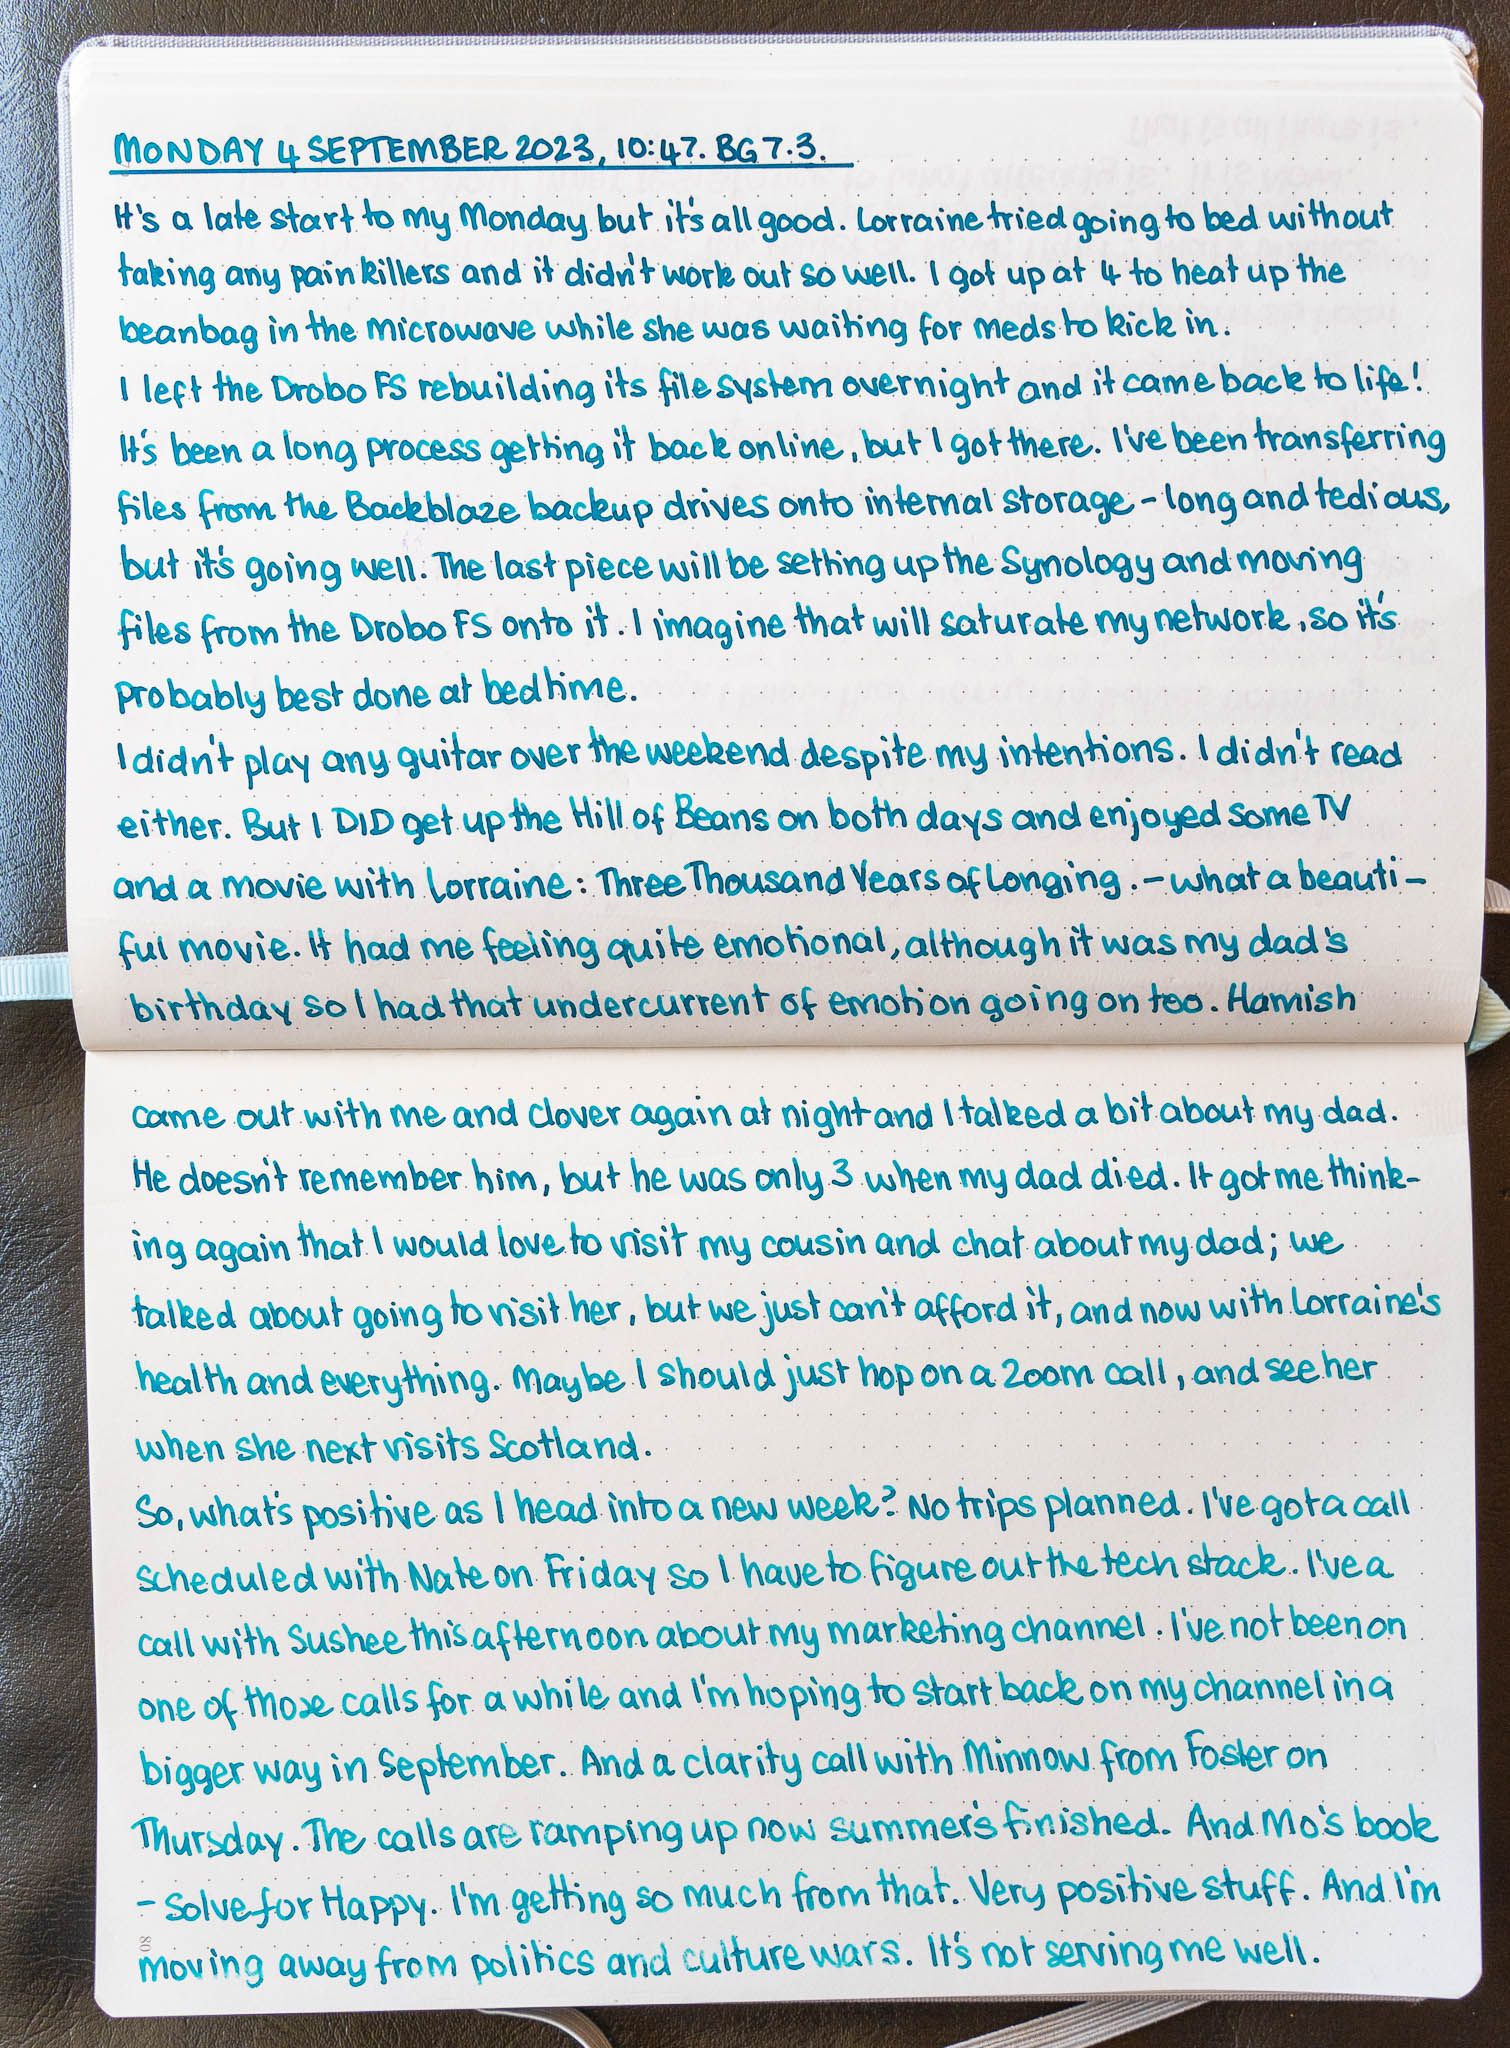 MONDAY 4 SEPTEMBER 2023, 10:47. BG 7.3.
It's a late start to my Monday but it's all good. Lorraine tried going to bed without
taking any painkillers and it didn't work out so well. I got up at 4 to heat up the
beanbag in the microwave while she was waiting for meds to kick in.
I left the Drobo FS rebuilding its file system overnight and it came back to life!
It's been a long process getting it back online, but I got there. I've been transferring
files from the Backblaze backup drives onto internal storage - long and tedious,
but it's going well. The last piece will be setting up the Synology and moving
files from the Drobo FS onto it. I imagine that will saturate my network, so it's
probably best done at bedtime.
I didn't play any guitar over the weekend despite my intentions. I didn't read
either. But I DID get up the Hill of Beans on both days and enjoyed some TV
and a movie with Lorraine: Three Thousand Years of Longing. - what a beauti-
ful movie. It had me feeling quite emotional, although it was my dad's
birthday so I had that undercurrent of emotion going on too. Hamish
came out with me and Clover again at night and I talked a bit about my dad.
He doesn't remember him, but he was only 3 when my dad died. It got me think-
ing again that I would love to visit my cousin and chat about my dad; we
talked about going to visit her, but we just can't afford it, and now with Lorraine's
health and everything. Maybe I should just hop on a Zoom call, and see her
when she next visits Scotland.
So, what's positive as I head into a new week? No trips planned. I've got a call
scheduled with Nate on Friday so I have to figure out the tech stack. I've a
call with Sushee this afternoon about my marketing channel. I've not been on
one of those calls for a while and I'm hoping to start back on my channel in a
bigger way in September. And a clarity call with Minnow from Foster on
Thursday. The calls are ramping up now summer's finished. And Mo's book
- Solve for Happy. I'm getting so much from that. Very positive stuff. And I'm
moving away from politics and culture wars. It's not serving me well.
80